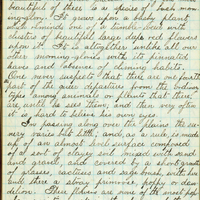 beautiful of these is a species of bush morn
ing glory. It grows upon a bushy plant
and reminds one of a tumble weed with
clusters of beautiful large deep red flowers
upon it. It is altogether unlike all our
other morning glories with its pinnated
leaves and absence of climbing habits.
One never suspects that there are
part of the queer departures from the ordinary
types among animals or plants that there
are until he sees them, and then very often
it is hard to believe his own eyes.
In passing along over the plains the sce
nery varies but little and, as a rule, is made
up of an almost level surface composed
of a sort of clayey soil mixed with sand
and gravel, and covered by a short growth
of grasses, cactuses and sage brush, with here
and there a showy primrose, poppy or dan
delion. These plains are some of the most